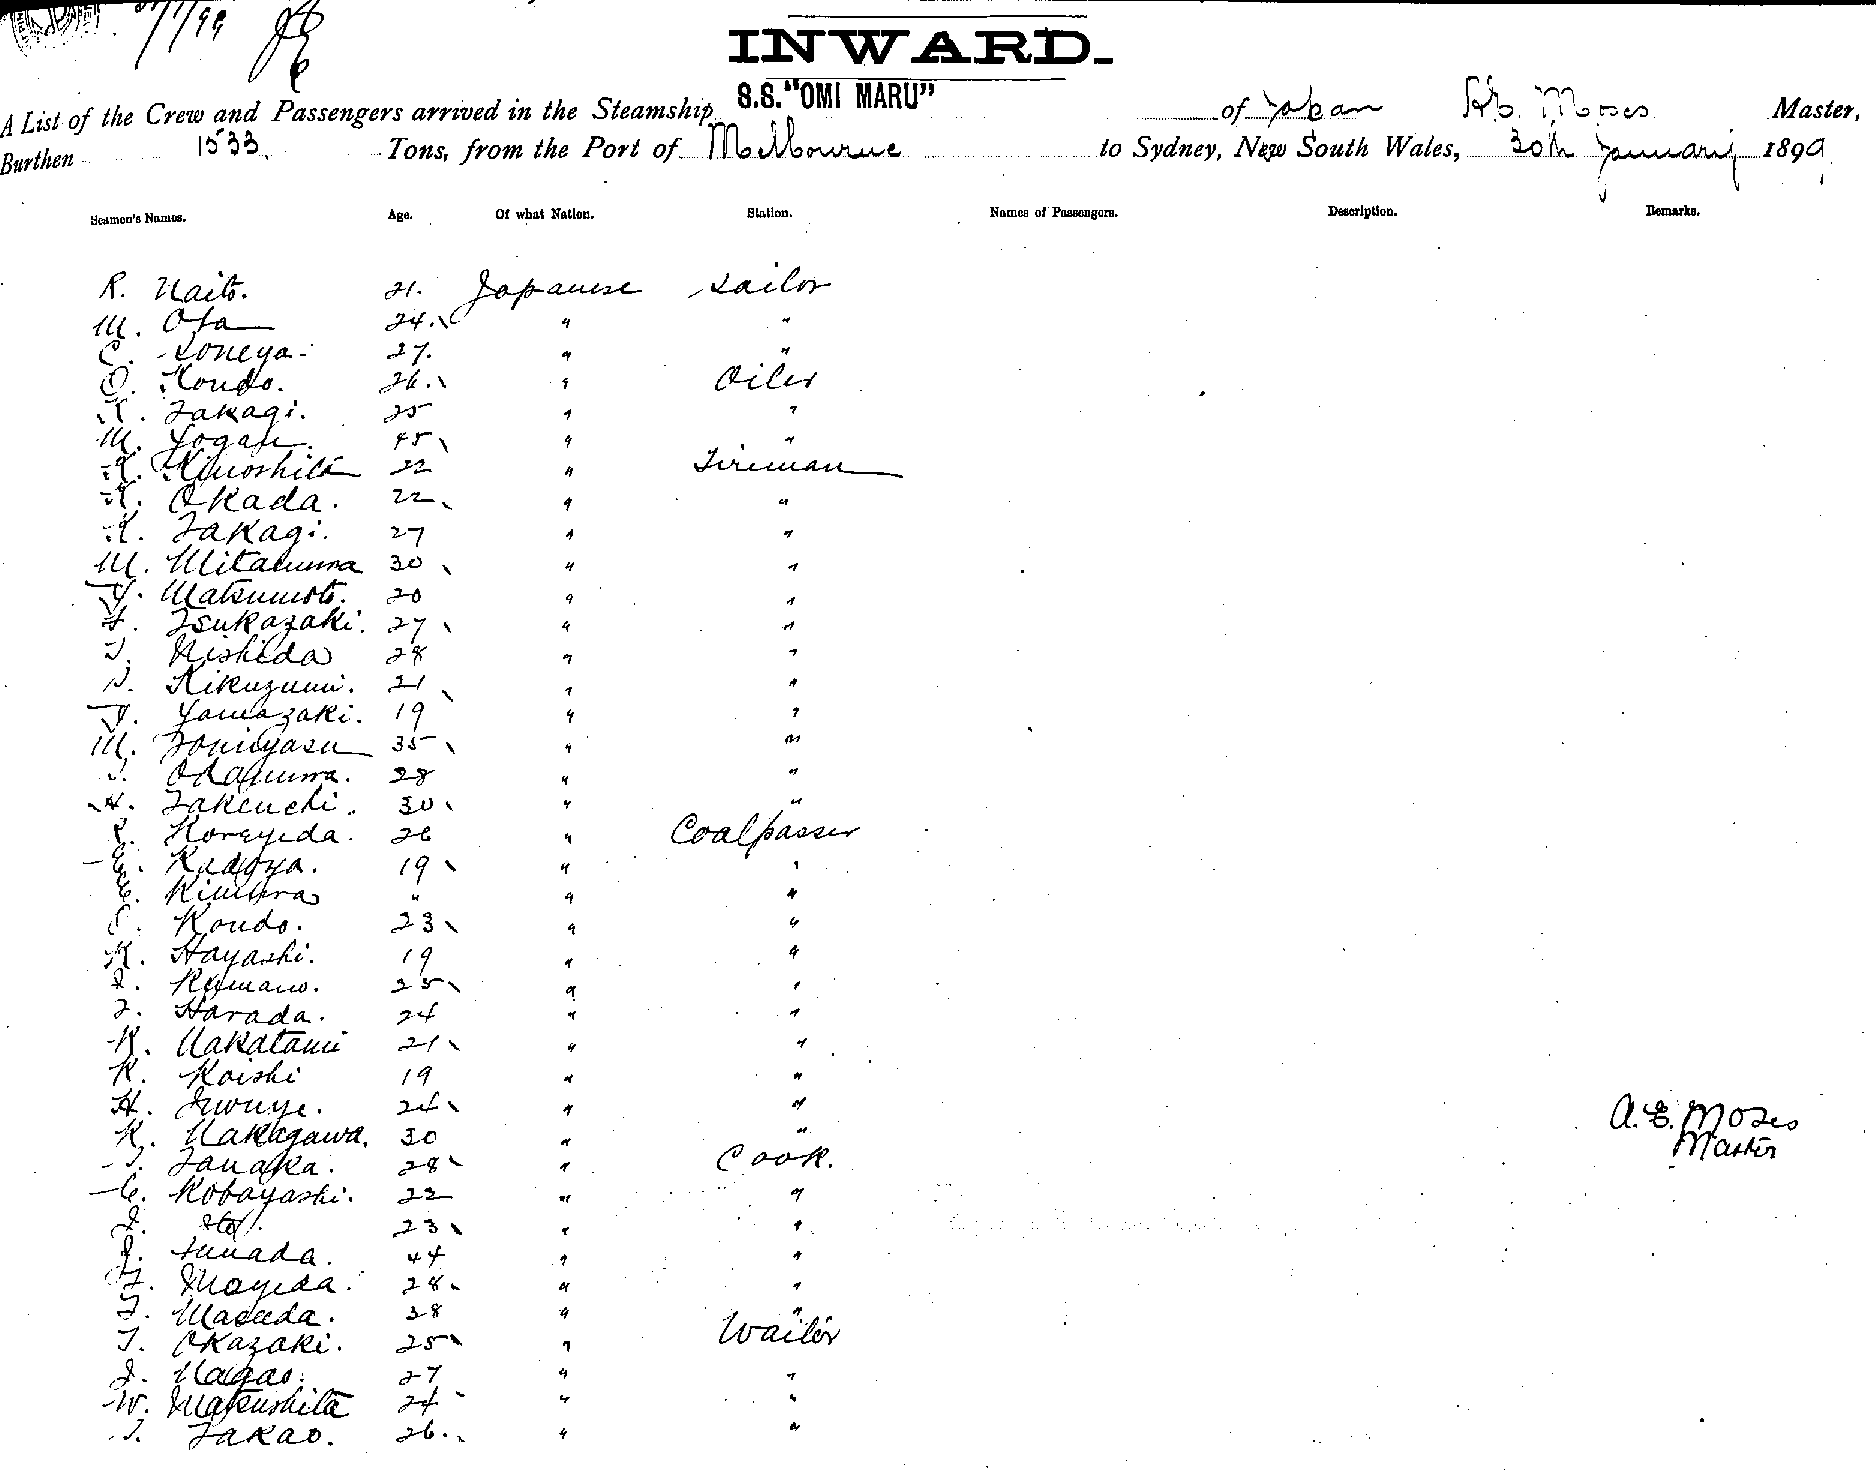 /1/99
INWARD.
A List of the Crew and Passengers arrived in the Steamship S.S. "OMI MARU" of Japan A.E. Moses Master,
Burthen 1533 Tons, from the Port of Melbourne to Sydney, New South Wales, 30th January 1899
Seamen's Names. Age. Of what Nation. Station. Names of Passengers. Description. Remarks.
R. Naito. 21. Japanese Sailor
M. Ota 24. " "
C. Soneya. 27. " "
O. Kondo. 26. " Oiler
K. Takagi. 25 " "
M. Yogan. 45 " "
K. Kinoshita 22 " Fireman
K. Okada. 22 " "
K. Takagi. 27 " "
M. Mitamura 30 " "
Y. Matsumoto. 20 " "
F. Tsukazaki. 27 " "
T. Nishida 28 " "
S. Kikuzumi. 21 " "
Y. Yamazaki. 19 " "
M. Tomiyasu 35 " "
T. Odamura. 28 " "
H. Takeuchi. 30 " "
K. Koreyeda. 26 " Coalpasser
Kadoya. 19 " "
Kimura " " "
S. Kondo. 23 " "
K. Hayashi. 19 " "
I. Kamano. 25 " "
T. Harada. 24 " "
K. Nakatani 21 " "
K. Koishi 19 " "
H. Inouye. 24 " "
K. Nakagawa. 30 " "
A. E. Moses
Master
T. Tanaka. 28 " Cook.
C. Kobayashi. 22 " "
I. Ito. 23 " "
Sunada. 44 " "
F. Mayeda. 28. " "
T. Masuda. 38 " "
T. Okazaki. 25 " Waiter
I. Nagao. 27 " "
W. Matsushita 24 " "
T. Takao. 26. " "